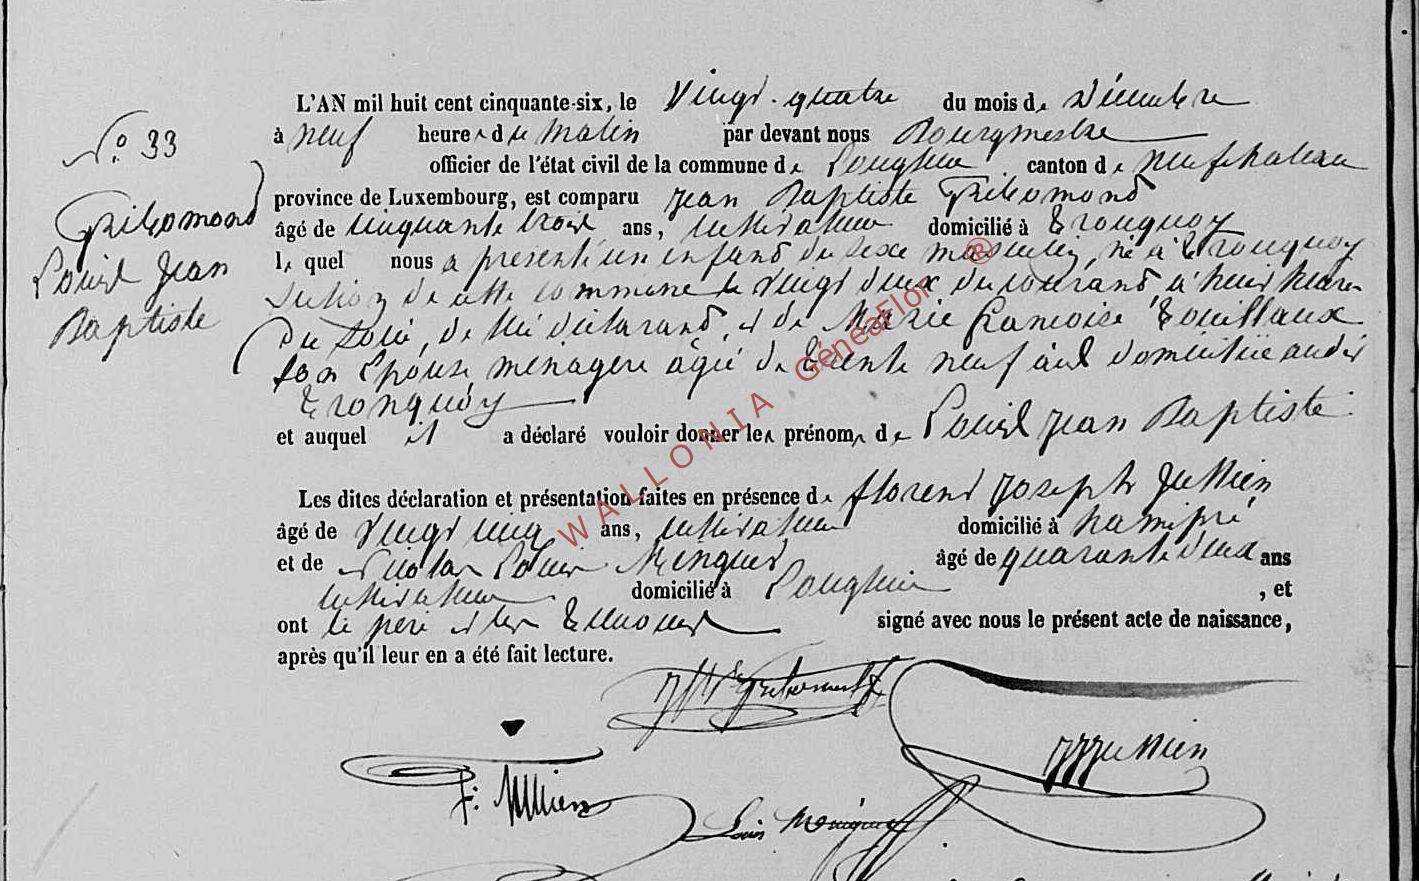 L'AN mil huit cent cinquante-six, le Vingt-quatre du mois de Décembre
No. 33
à neuf heures du matin par devant nous Bourgmestre
officier de l'état civil de la commune de Longlier canton de neufchateau
province de Luxembourg, est comparu Jean Baptiste Gribomont
Gribomont
âgé de cinquante trois ans, cultivateur domicilié à Tronquoy
Louis Jean
le quel nous a présenté un enfant du sexe masculin, né à Tronquoy
Baptiste
section de cette commune le vingt deux du courant à huit heures
du soir, de lui déclarant, et de Marie françoise
son épouse, ménagère âgée de trente neuf ans domiciliée audit
Tronquoy
et auquel il a déclaré vouloir donner les prénoms de Louis Jean Baptiste
Les dites déclaration et présentation faites en présence de florent Joseph Jullien
âgé de vingt cinq ans, cultivateur domicilié à hamipré
et de Nicolas Louis âgé de quarante deux ans
cultivateur domicilié à Longlier , et
ont le père et les témoins signé avec nous le présent acte de naissance,
après qu'il leur en a été fait lecture.
Gribomont
Jullien
F. Jullien
Louis
WALLONIA GénéaFlor ®